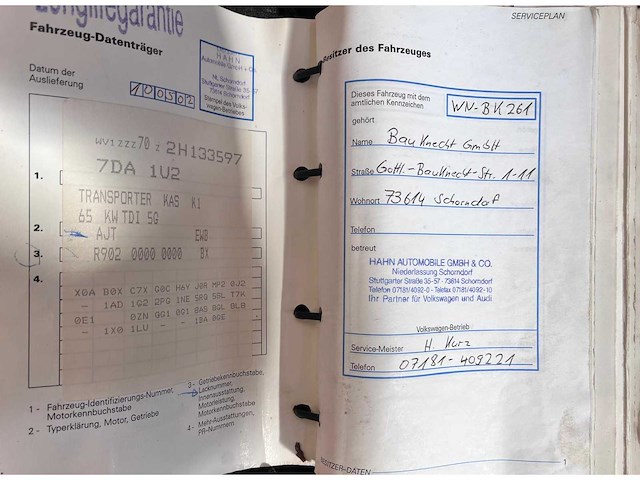 Longlifegarantie
Fahrzeug-Datenträger
Datum der
Auslieferung
100502
HAHN
Automobile GmbH + Co.
NL Schorndorf
Stuttgarter Straße 35-57
73614 Schorndorf
Stempel des Volks-
wagen-Betriebes
WV1ZZZ70Z2H133597
7DA 1U2
1.
TRANSPORTER KAS K1
65 KW TDI 5G
2. AJT EWB
3. R902 0000 0000 BX
4.
X0A B0X C7X G0C H6Y J0R MP2 0J2
- 1AD 1G2 2P0 1NE 5RQ 5SL T7K
0E1 0ZN GQ1 0G1 BAS BGL 8LB
- 1X0 1LU - - 1BA 8GE
1 - Fahrzeug-Identifizierungs-Nummer,
Motorkennbuchstabe
2 - Typerklärung, Motor, Getriebe
3 - Getriebekennbuchstabe,
Lacknummer,
Innenausstattung,
Motorleistung,
Motorkennbuchstabe
4 - Mehr-Ausstattungen,
PR-Nummern
SERVICEPLAN
Besitzer des Fahrzeuges
Dieses Fahrzeug mit dem
amtlichen Kennzeichen
WN-BK 261
gehört
Name Bauknecht GmbH
Straße Gottl.-Bauknecht-Str. 1-11
Wohnort 73614 Schorndorf
Telefon
betreut
HAHN AUTOMOBILE GMBH & CO.
Niederlassung Schorndorf
Stuttgarter Straße 35-57 · 73614 Schorndorf
Telefon 07181/4092-0 · Telefax 07181/4092-10
Ihr Partner für Volkswagen und Audi
Volkswagen-Betrieb
Service-Meister H. Kurz
Telefon 07181-409221
BESITZER-DATEN
1